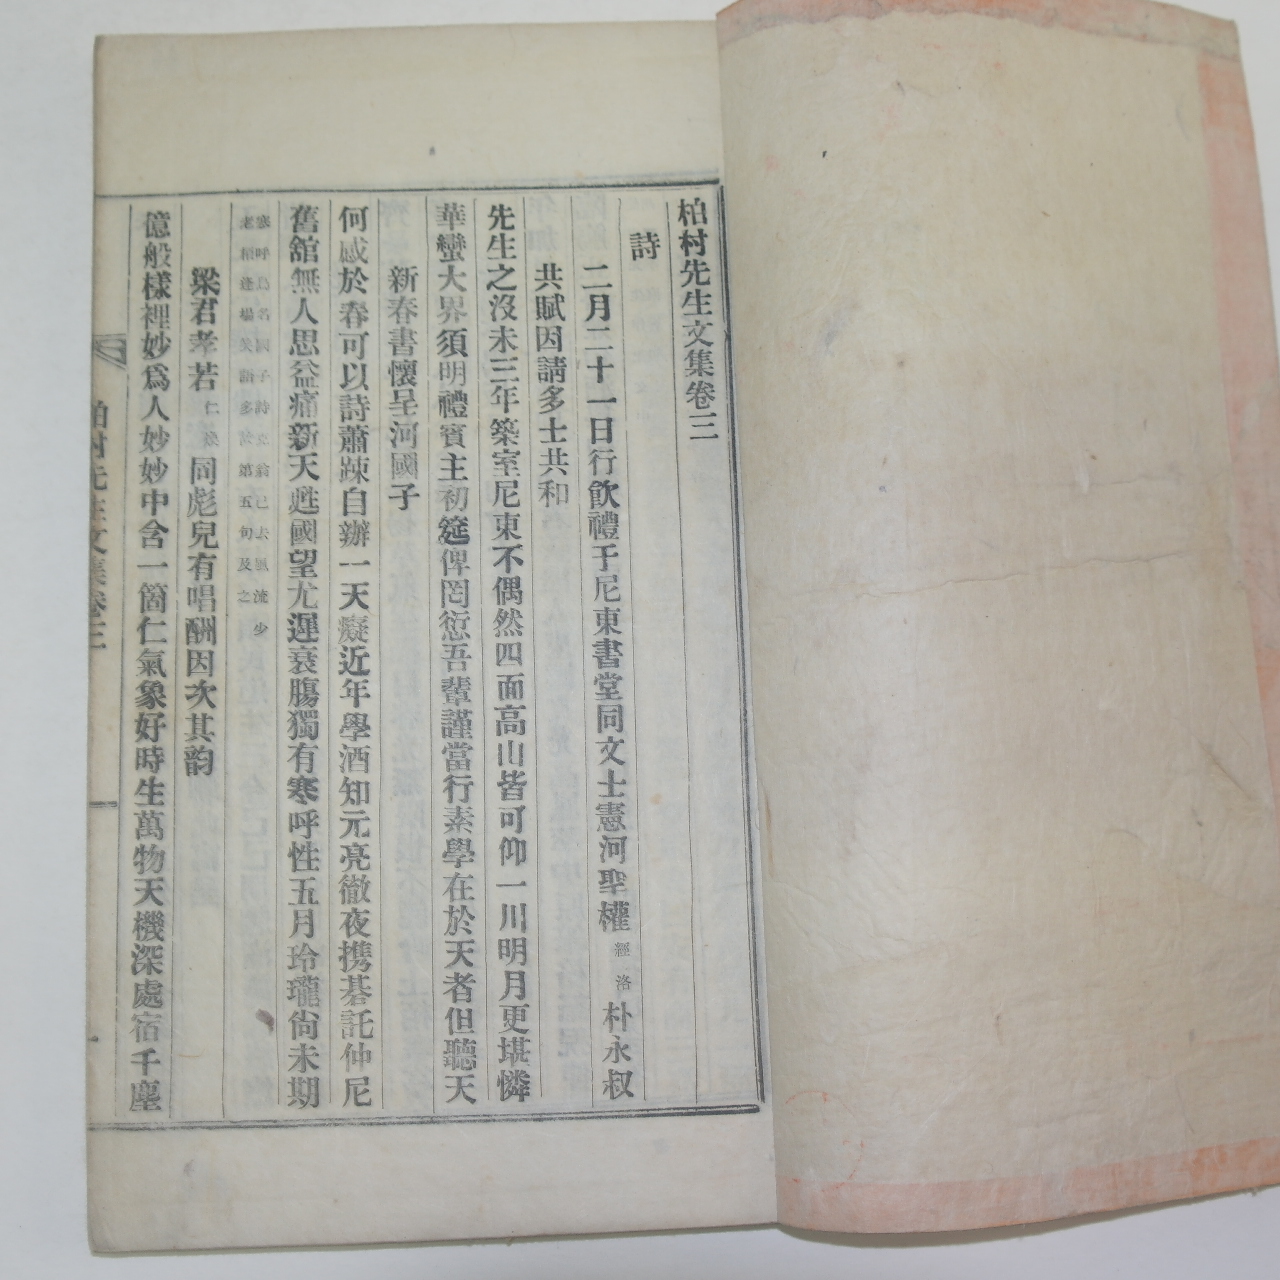 柏村先生文集卷三
詩
二月二十一日行飮禮于尼東書堂同文士憲河聖權經洛朴永叔
共賦因請多士共和
先生之沒未三年築室尼東不偶然四面高山皆可仰一川明月更堪憐
華蠻大界須明禮賓主初筵俾罔愆吾輩謹當行素學在於天者但聽天
新春書懷呈河國子
何感於春可以詩蕭踈自辦一天癡近年學酒知元亮徹夜携碁託仲尼
舊舘無人思益痛新天甦國望尤遲衰膓獨有寒呼性五月玲瓏尙未期
寒呼鳥名國子詩克翁已去風流少
老稻逢場笑語多故第五句及之
梁君孝若仁同彪兒有唱酬因次其韵
億般樣裡妙爲人妙妙中含一箇仁氣象好時生萬物天機深處宿千塵
柏村先生文集卷三